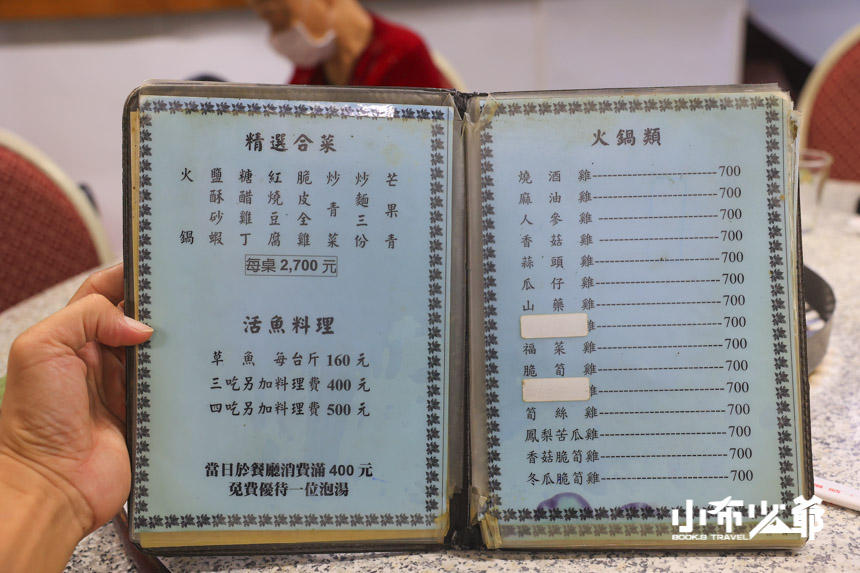 精選合菜
火鍋
鹽酥砂蝦
糖醋雞丁
紅燒豆腐
脆皮全雞
炒青菜
炒麵三份
芒果青
每桌 2,700 元
活魚料理
草魚 每台斤 160 元
三吃另加料理費 400 元
四吃另加料理費 500 元
當日於餐廳消費滿 400 元
免費優待一位泡湯
火鍋類
燒酒雞 700
麻油雞 700
人參雞 700
香菇雞 700
蒜頭雞 700
瓜仔雞 700
山藥雞 700
雞 700
福菜雞 700
脆筍雞 700
雞 700
筍絲雞 700
鳳梨苦瓜雞 700
香菇脆筍雞 700
冬瓜脆筍雞 700
小布少爺
BOOK.B TRAVEL